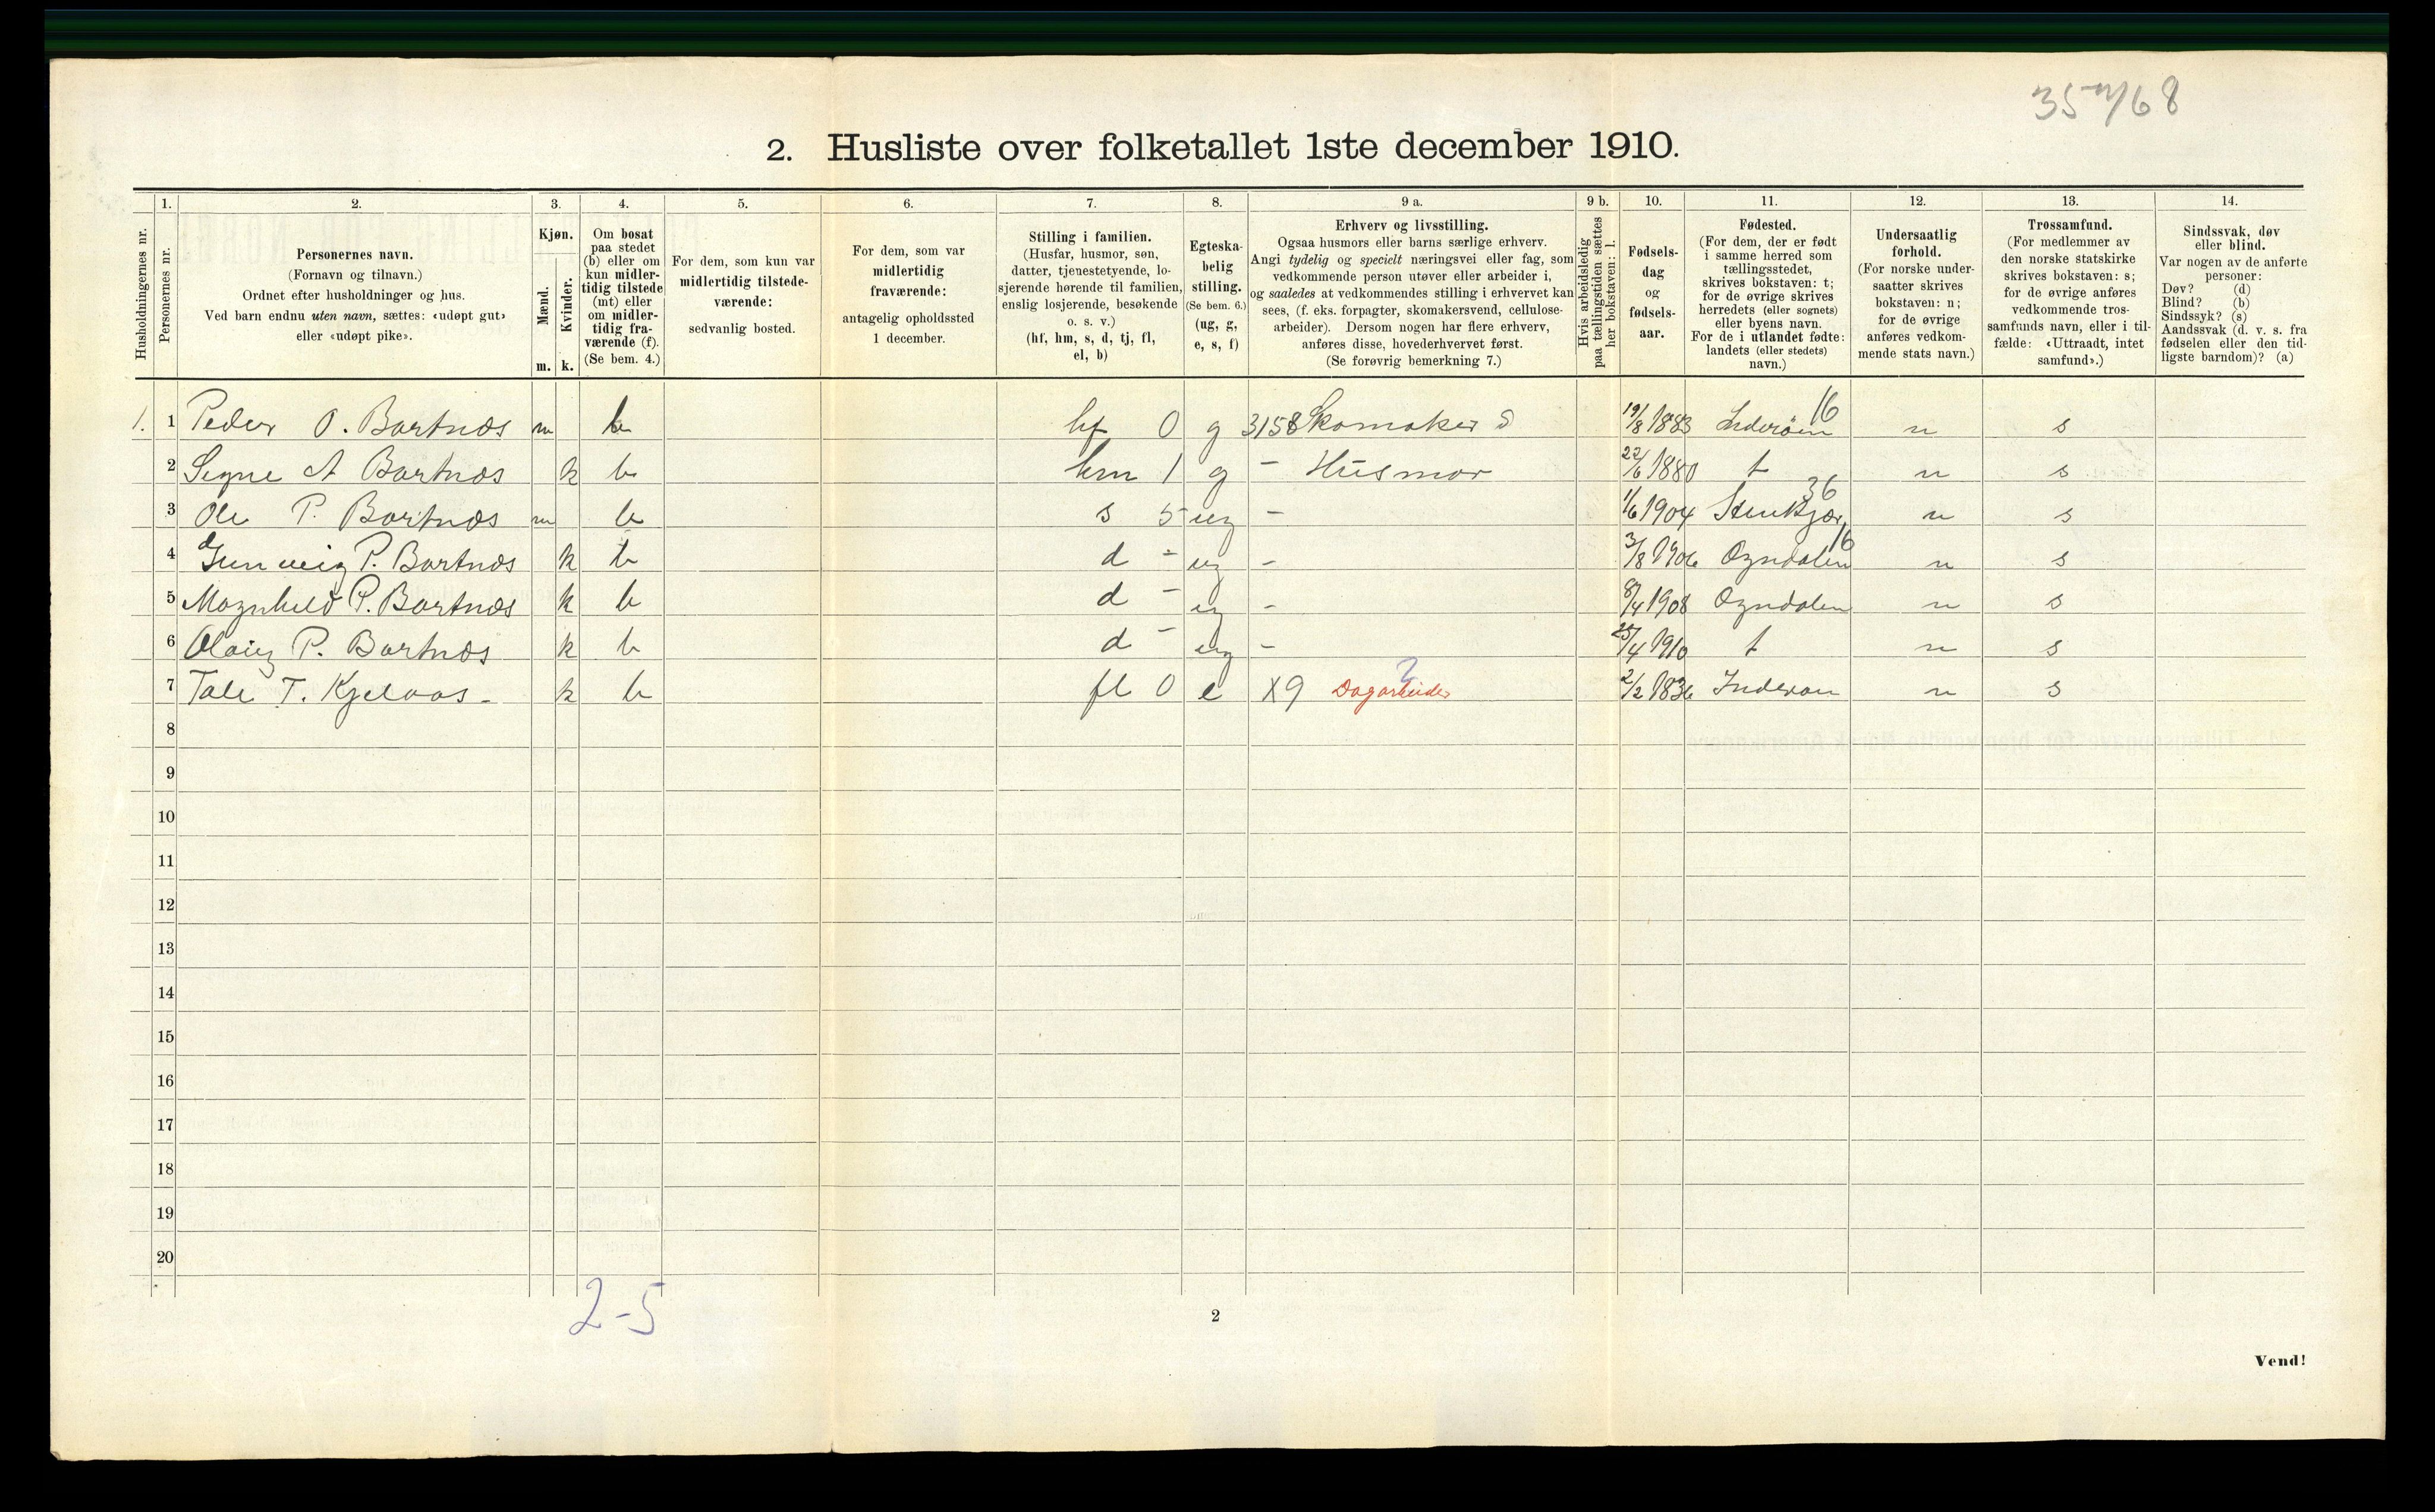 35 n/68
2. Husliste over folketallet 1ste december 1910.
Husholdningernes nr.
1. Personernes nr.
2. Personernes navn.
(Fornavn og tilnavn.)
Ordnet efter husholdninger og hus.
Ved barn endnu uten navn, sættes: «udøpt gut»
eller «udøpt pike».
3. Kjøn.
Mænd. Kvinder.
m. k.
4. Om bosat
paa stedet
(b) eller om
kun midler-
tidig tilstede
(mt) eller
om midler-
tidig fra-
værende (f).
(Se bem. 4.)
5. For dem, som kun var
midlertidig tilstede-
værende:
sedvanlig bosted.
6. For dem, som var
midlertidig
fraværende:
antagelig opholdssted
1 december.
7. Stilling i familien.
(Husfar, husmor, søn,
datter, tjenestetyende, lo-
sjerende hørende til familien,
enslig losjerende, besøkende
o. s. v.)
(hf, hm, s, d, tj, fl,
el, b)
8. Egteska-
belig
stilling.
(Se bem. 6.)
(ug, g,
e, s, f)
9 a. Erhverv og livsstilling.
Ogsaa husmors eller barns særlige erhverv.
Angi tydelig og specielt næringsvei eller fag, som
vedkommende person utøver eller arbeider i,
og saaledes at vedkommendes stilling i erhvervet kan
sees, (f. eks. forpagter, skomakersvend, cellulose-
arbeider). Dersom nogen har flere erhverv,
anføres disse, hovederhvervet først.
(Se forøvrig bemerkning 7.)
9 b. Hvis arbeidsledig
paa tællingstiden sættes
her bokstaven: l.
10. Fødsels-
dag
og
fødsels-
aar.
11. Fødested.
(For dem, der er født
i samme herred som
tællingsstedet,
skrives bokstaven: t;
for de øvrige skrives
herredets (eller sognets)
eller byens navn.
For de i utlandet fødte:
landets (eller stedets)
navn.)
12. Undersaatlig
forhold.
(For norske under-
saatter skrives
bokstaven: n;
for de øvrige
anføres vedkom-
mende stats navn.)
13. Trossamfund.
(For medlemmer av
den norske statskirke
skrives bokstaven: s;
for de øvrige anføres
vedkommende tros-
samfunds navn, eller i til-
fælde: «Uttraadt, intet
samfund».)
14. Sindssvak, døv
eller blind.
Var nogen av de anførte
personer:
Døv? (d)
Blind? (b)
Sindssyk? (s)
Aandssvak (d. v. s. fra
fødselen eller den tid-
ligste barndom)? (a)
1. 1 Peder O. Bartnæs m b hf 0 g 3158 Skomaker S 19/8 1883 Inderøen 16 n s
2 Signe A Bartnæs k b hm 1 g - Husmor 22/6 1880 t n s
3 Ole P. Bartnæs m b s 5 ug - 1/6 1904 Stenkjær 36 n s
4 Gunveig P. Bartnæs k b d - ug - 3/8 1906 Ogndalen 16 n s
5 Magnhild P. Bartnæs k b d - ug - 8/4 1908 Ogndalen n s
6 Olaug P. Bartnæs k b d - ug - 25/4 1910 t n s
7 Tale T. Kjelaas - k b fl 0 e X9 Dagarbeider 2 2/2 1836 Inderøen n s
8
9
10
11
12
13
14
15
16
17
18
19
20
2-5
2
Vend!